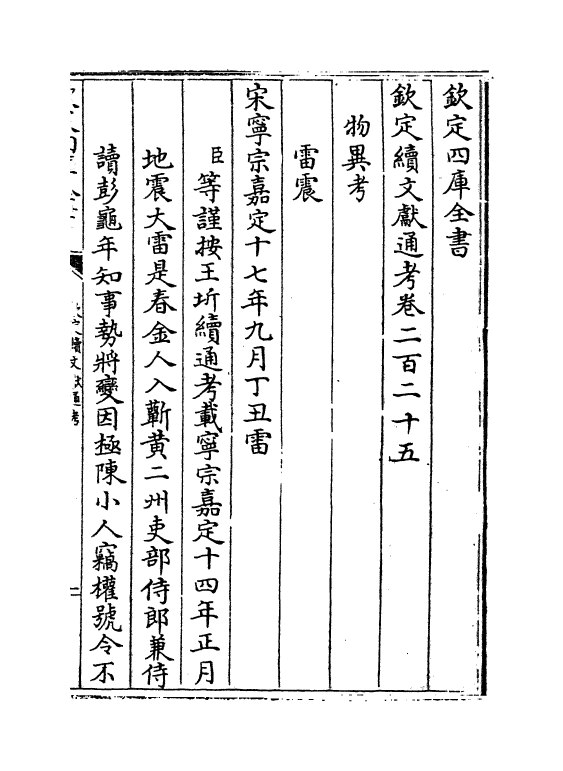 欽定四庫全書
欽定續文獻通考卷二百二十五
物異考
雷震
宋寧宗嘉定十七年九月丁丑雷
臣等謹按王圻續通考載寧宗嘉定十四年正月
地震大雷是春金人入蘄黃二州吏部侍郎兼侍
讀彭龜年知事勢將變因極陳小人竊權號令不